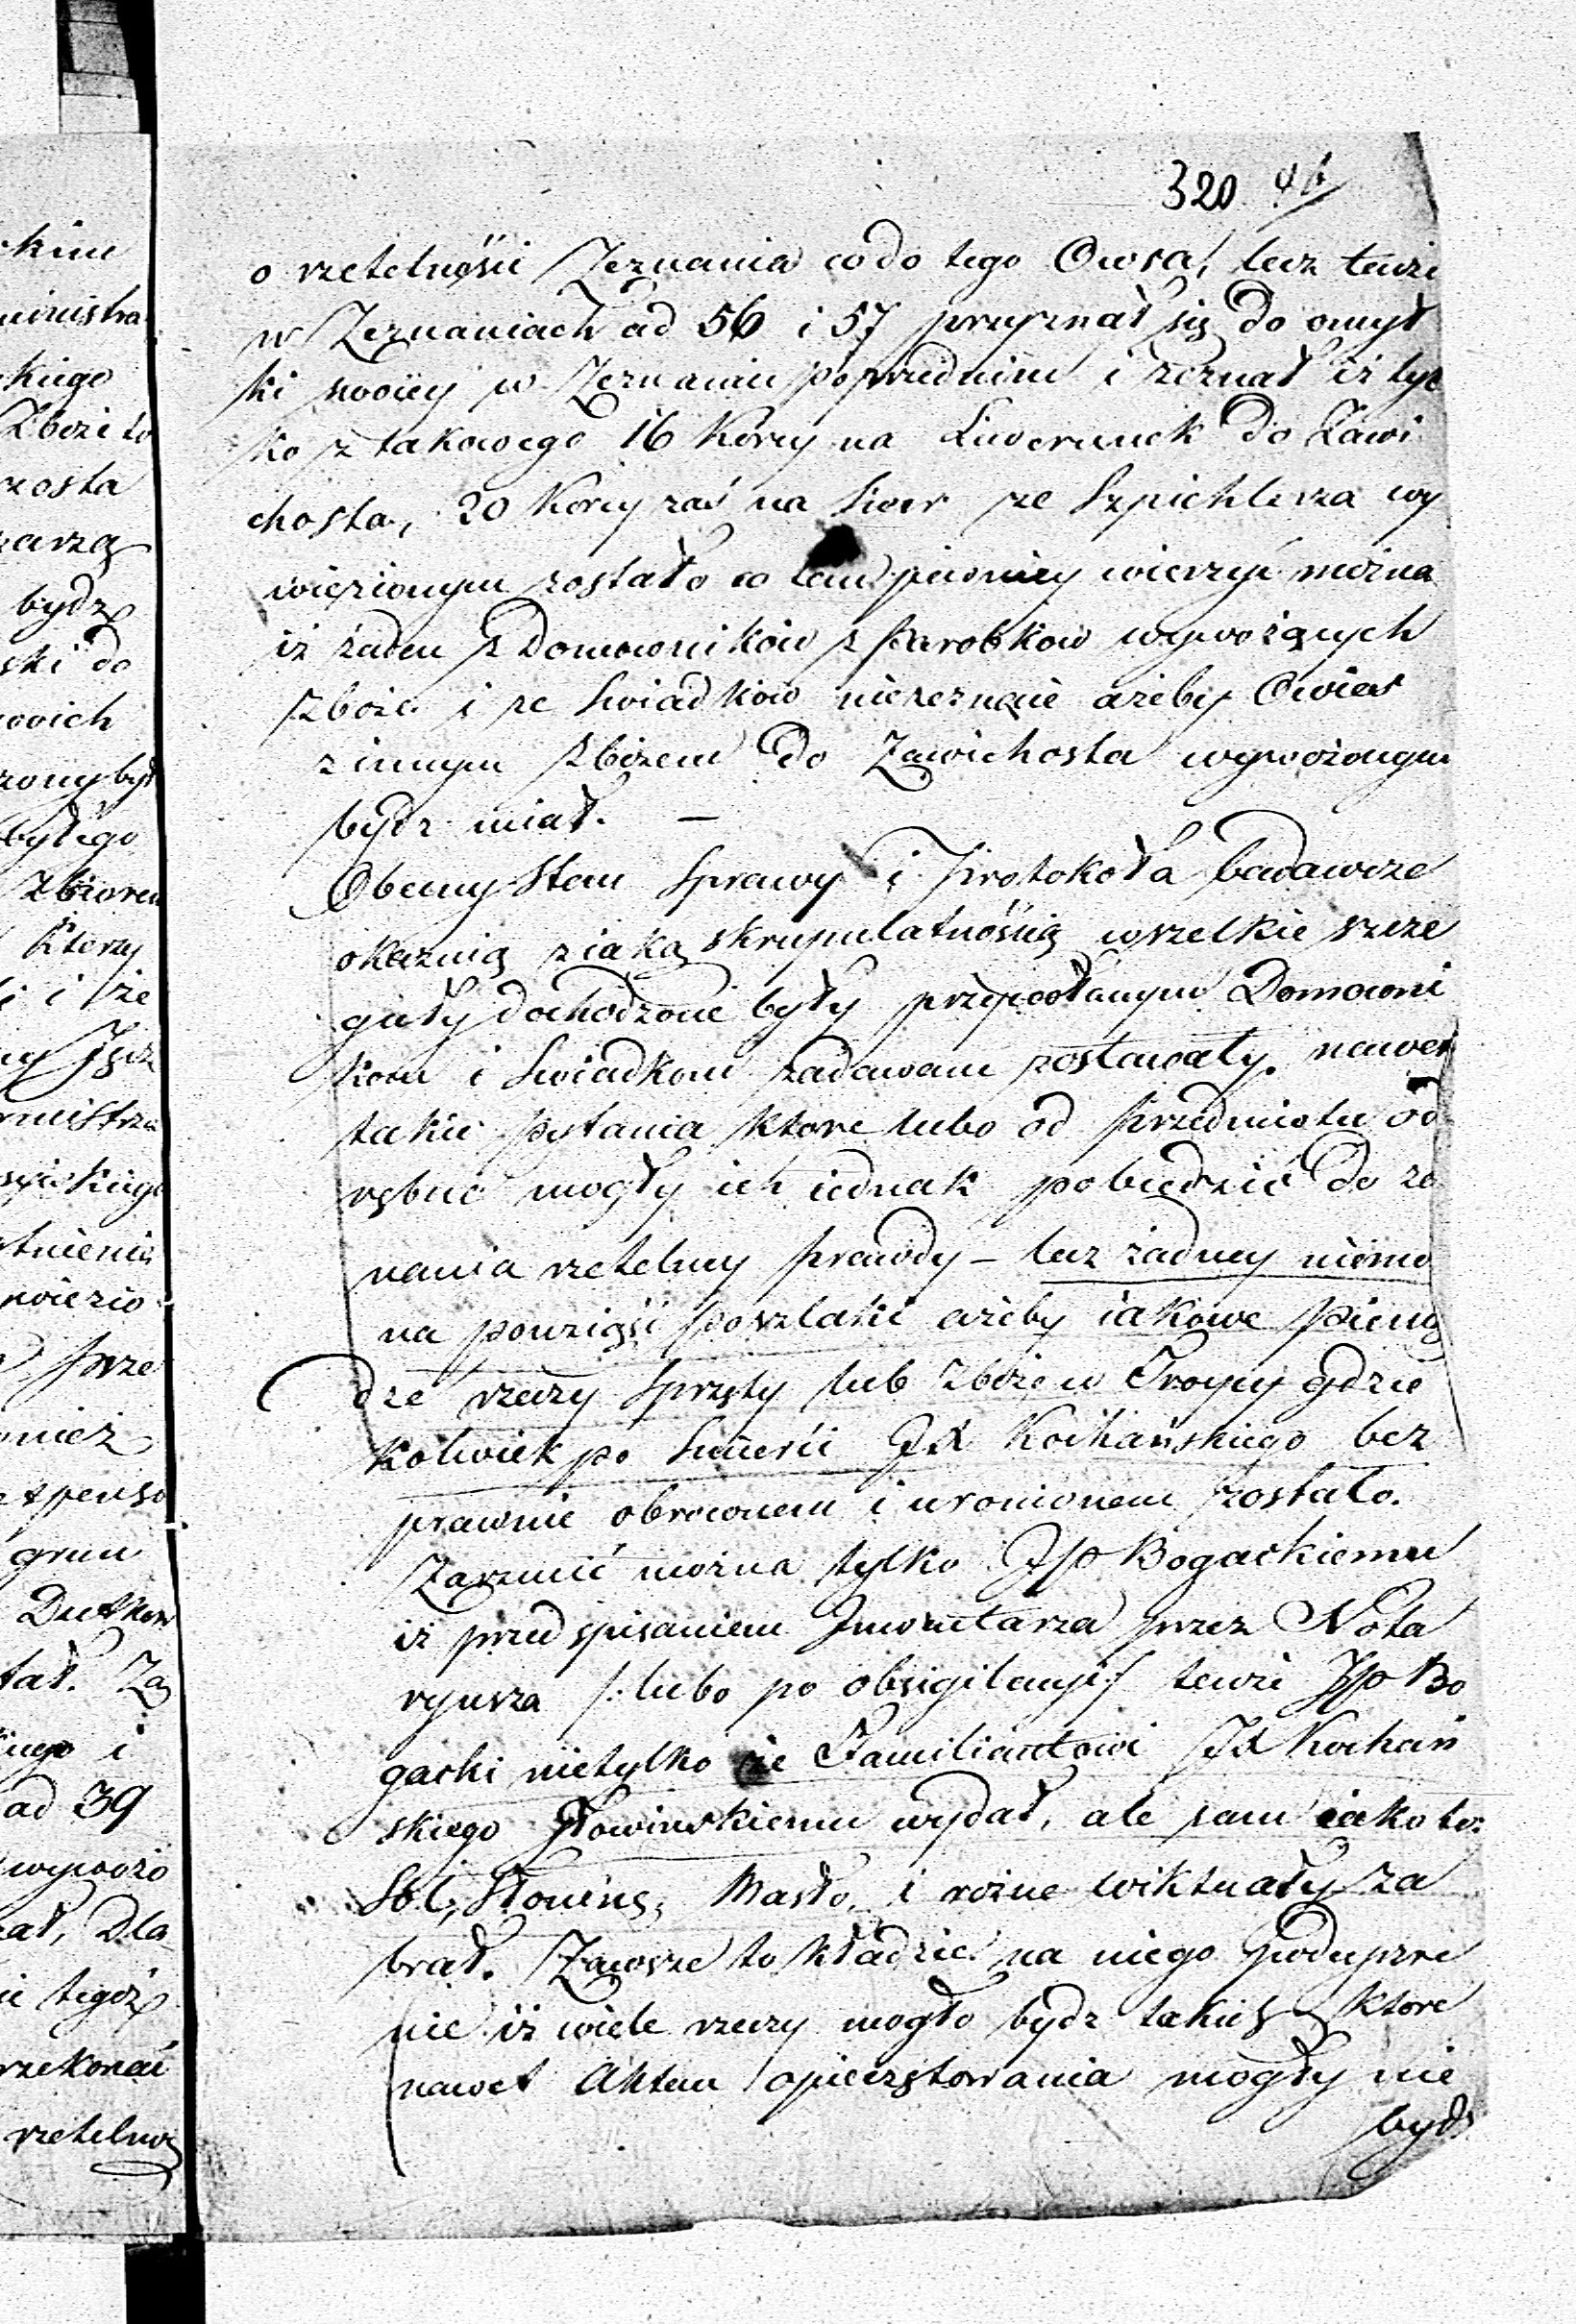 320
o rzetelności Zeznania co do tego Owsa, lecz tenże
w Zeznaniach ad 56 i 57 przyznał się do omył
ki swoiey w Zeznaniu poprzednim i zeznał iż tyl
ko z takowego 16 Korcy na Liwerunek do Zawi
chosta, 20 Korcy zaś na Siew ze Szpichlerza wy
wiezionym zostało co tem pewniey wierzyć można
iż żaden z Domowników z Parobkow wywożących
zboże i ze Swiadkow niezeznaie ażeby Owies
z innym zbożem do Zawichosta wywożonym
bydz miał. —
Obecny Stan Sprawy i Protokoła badawcze
okazuią z iaką skrupulatnością wszelkie szcze
guły dochodzone były przywołanym Domowni
kom i Swiadkom zadawane zostawały. nawet
takie pytania ktore lubo od przedmiotu od
rębne mogły ich iednak pobudzić do ze
nania rzetelney prawdy – lecz żadney niemo
na powziąść poszlaki ażeby iakowe pienią
dze rzeczy sprzęty lub zboże w Troycy gdzie
kolwiek po Smierci JX Kochańskiego bez
prawnie obroconem i uronionem zostało.
Zarzucić można tylko JP Bogackiemu
iż przed spisaniem Inwentarza przez Nota
ryusza /: lubo po obsigilacyi :/ tenże JP Bo
gacki nietylko że Familiantowi JX Kochań
skiego Głowinskiemu wydał, ale sam iako to:
Sol, Słoninę, Masło, i rożne wiktuały za
brał. Zawsze to kładzie na niego podeyrze
nie iż wiele rzeczy mogło bydz takich ktore
nawet Aktem opieczętowania mogły nie
bydz